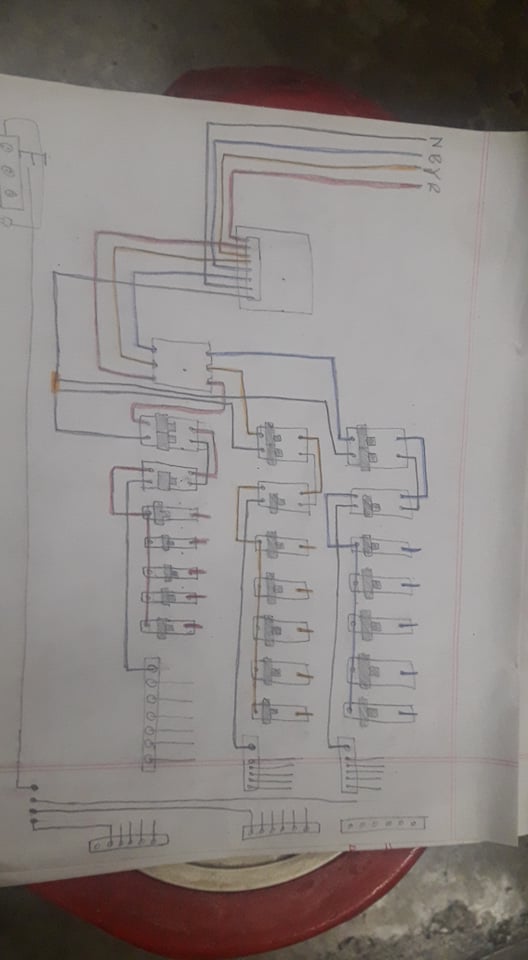 N B Y R